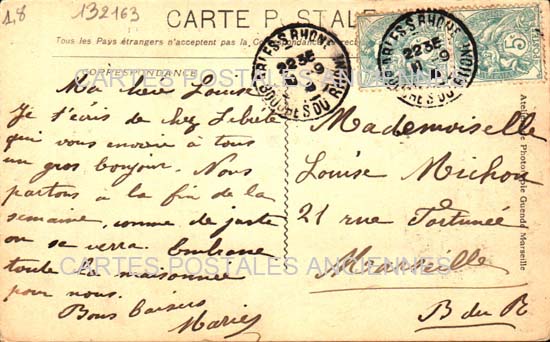 18 132163
CARTE POSTALE
Tous les Pays étrangers n'acceptent pas la Correspondance
CORRESPONDANCE
Ma chère Louise
Je t'écris de chez
qui vous envoie à tous
un gros bonjour. Nous
partons à la fin de la
semaine, comme de juste
on se verra. Embrasse
toute la maisonnée
pour nous.
Bons baisers
Marie
ARLES-S-RHONE
22 9
BOUCHES DU RHONE
ARLES-S-RHONE
22 9
BOUCHES DU RHONE
5
Mademoiselle
Louise Michon
21 rue Fortunée
Marseille
B du R
Atelier de Photographie Guende Marseille
CARTES POSTALES ANCIENNES
CARTES POSTALES ANCIENNES